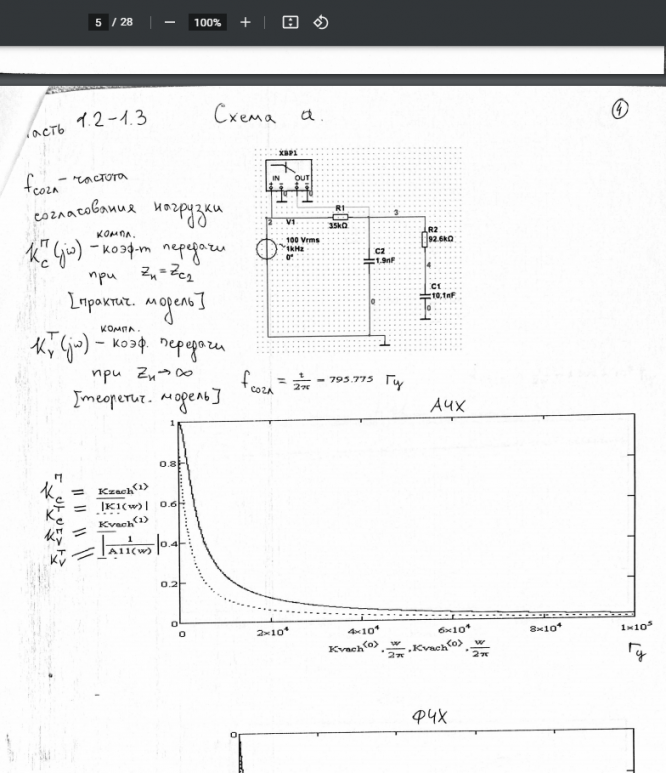 5 / 28
100%
Часть 1.2-1.3 Схема а. 4
fсогл - частота
согласования нагрузки
компл.
KcП(jω) - коэф-т передачи
при Zн = Zc2
[практич. модель]
компл.
KvТ(jω) - коэф. передачи
при Zн → ∞
[теоретич. модель]
XBP1
IN OUT
R1
35kΩ
2 V1 3
100 Vrms
1kHz
0°
R2
92.6kΩ
C2
1.9nF
4
C1
10.1nF
0 0
fсогл = 1/2π = 795.775 Гц
АЧХ
KcП = Kzach<1>
KcТ = |K1(w)|
KvП = Kvach<1>
KvТ = |1/A11(w)|
1
0.8
0.6
0.4
0.2
0
0 2×10⁴ 4×10⁴ 6×10⁴ 8×10⁴ 1×10⁵
Kvach<0>, w/2π, Kvach<0>, w/2π Гц
ФЧХ
0